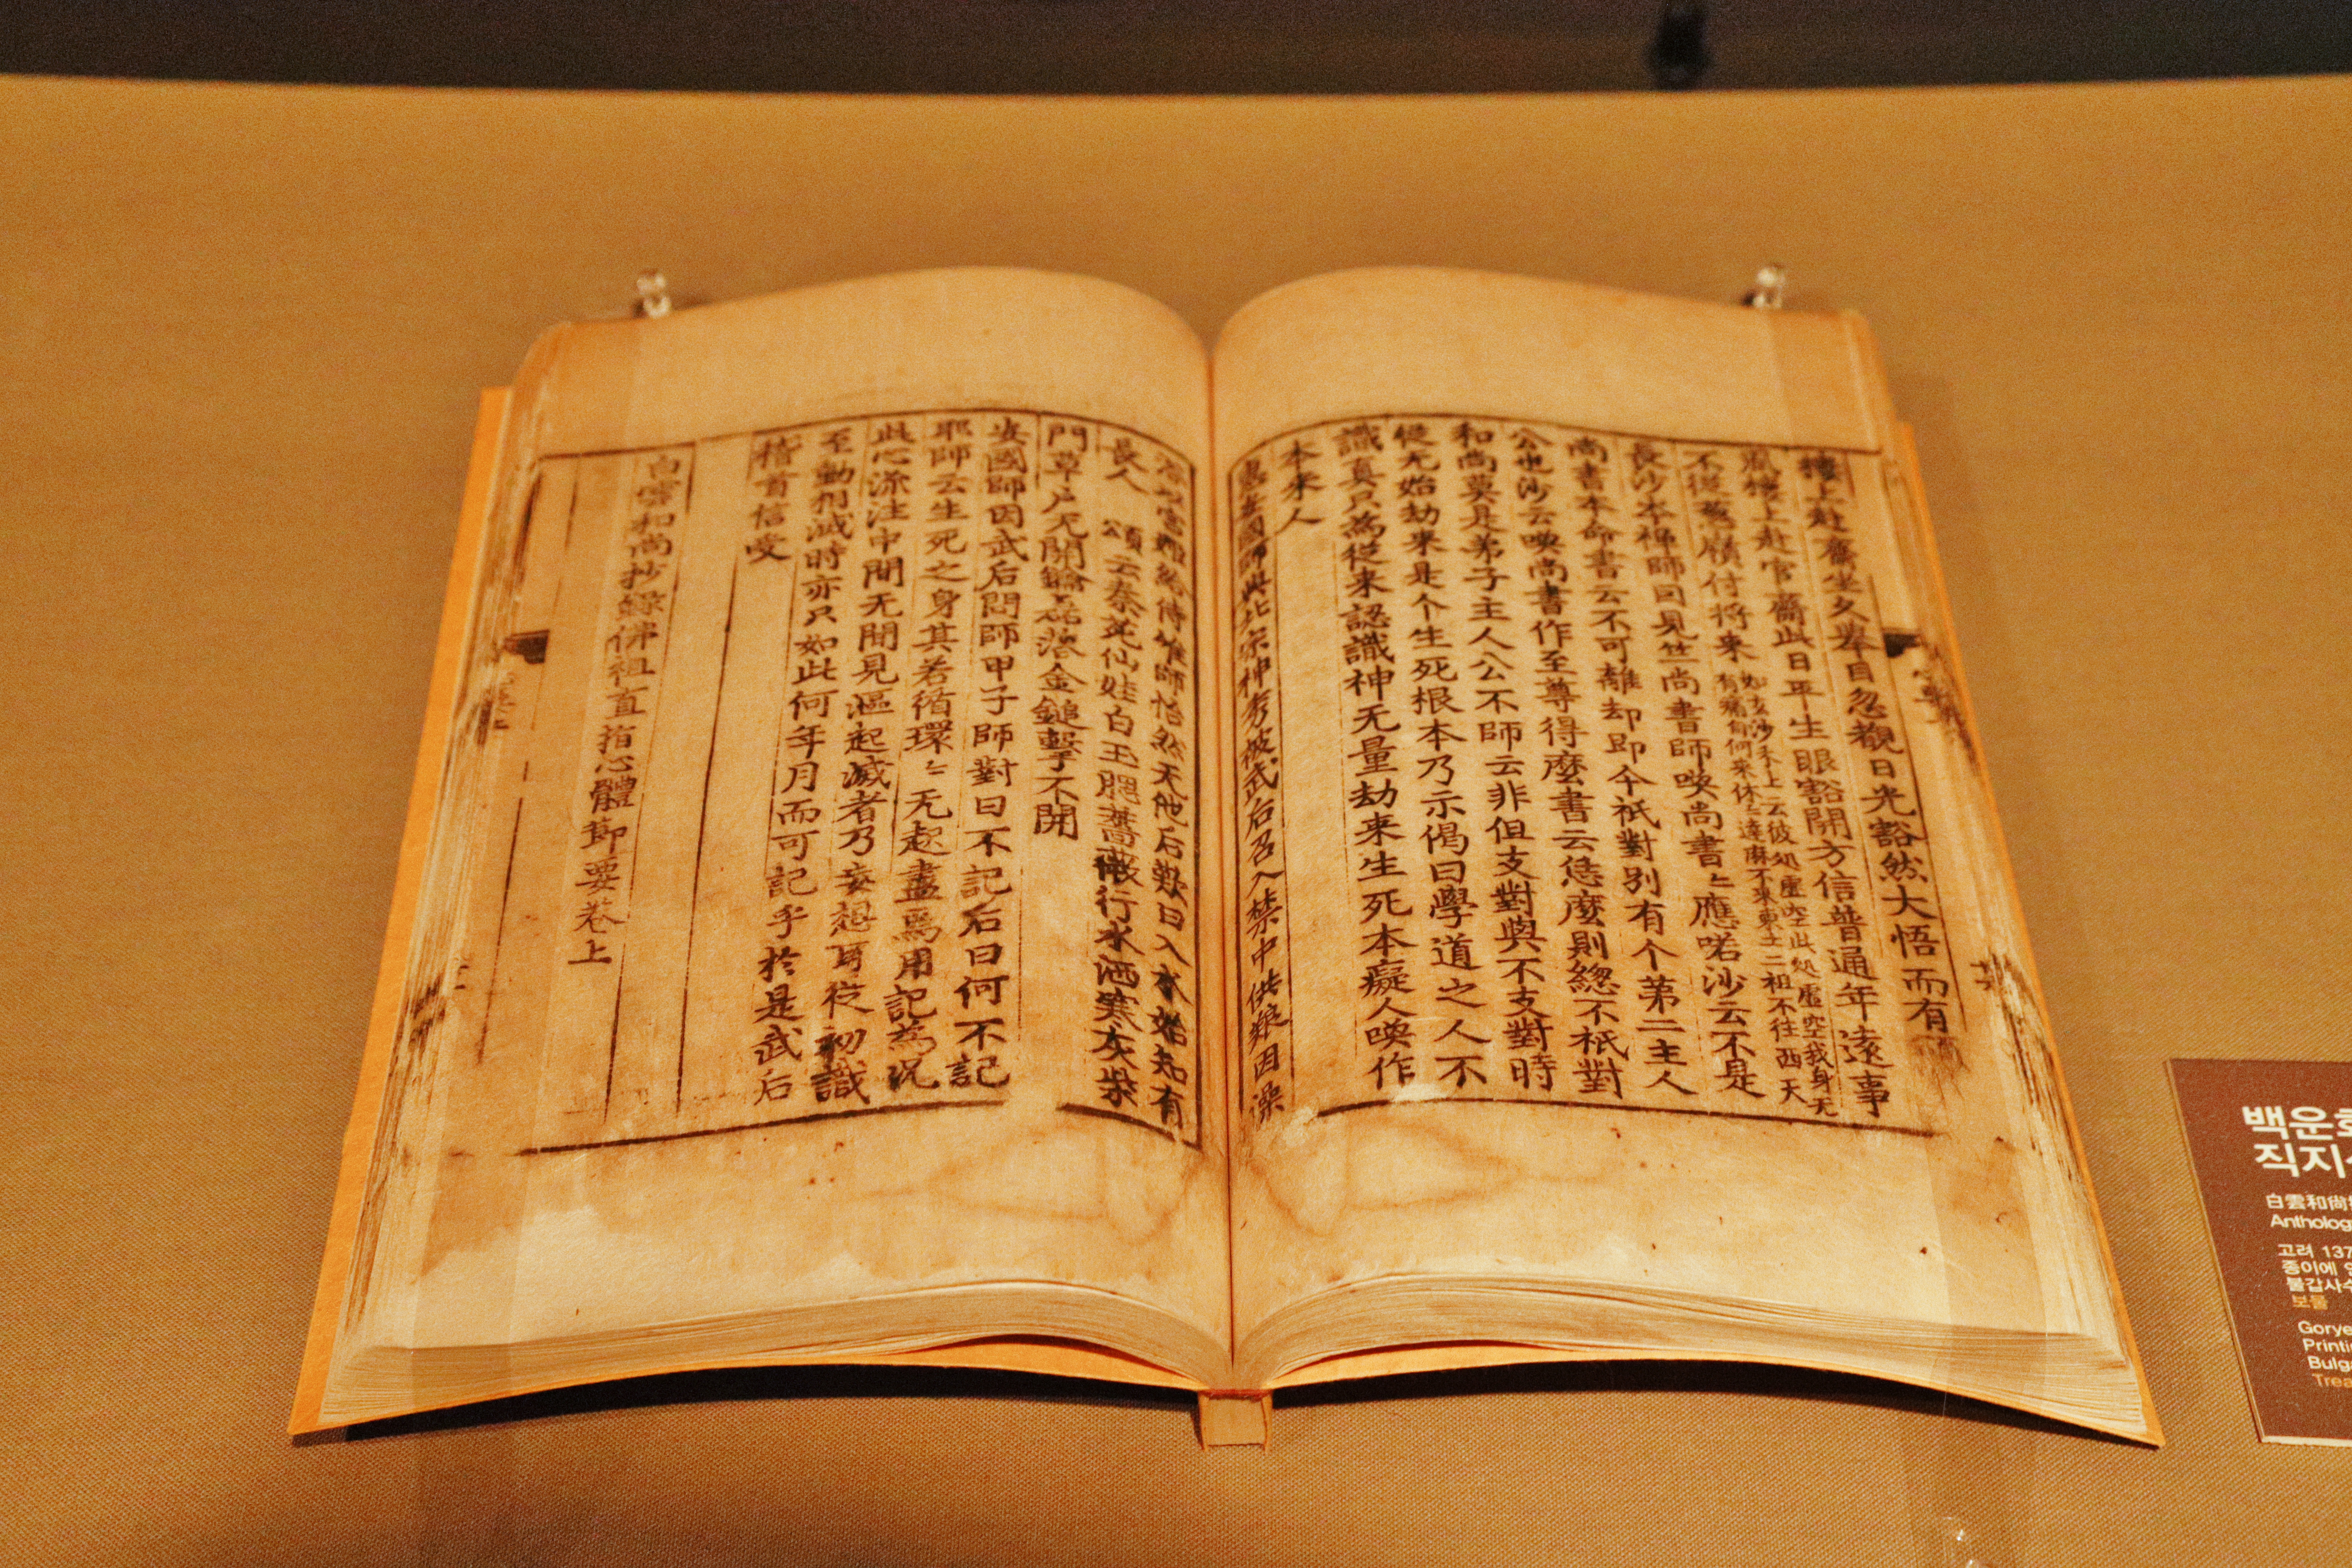 樓上赴齋坐久擧目忽覩日光豁然大悟而有
風樓上赴官齋此日平生眼豁開方信普通年遠事
不從葱嶺付将来 如玄沙 上云彼処虛空此処虛空我身无
有痛自何来休〻達麻不来東土二祖不往西天
長沙本禅師因見竺尚書師喚尚書〻應喏沙云不是
尚書本命書云不可離却即今祇對別有个苐二主人
公也沙云喚尚書作至尊得麽書云恁麽則緫不祇對
和尚莫是弟子主人公不師云非但支對與不支對時
從无始劫来是个生死根本乃示偈曰學道之人不
識真只為從来認識神无量劫来生死本癡人喚作
本来人
惠安國師與北宗神秀被武后召入禁中供飬因澡
浴以宮姬給侍 師怡然 他后歎曰入水始知有
長人 頌云秦 仙娃白玉 蕎薇行水洒寒灰
門草戸无開鑰〻磊落金鎚擊不開
安國師因武后問師甲子師對曰不記后曰何不記
耶師云生死之身其若循環〻〻无起盡焉用記為况
此心流注中間无間見漚起滅者乃妄想耳從初識
至動相滅時亦只如此何年月而可記乎於是武后
稽首信受
白雲和尚抄錄佛祖直指心體節要卷上
백운화
직지
白雲和尚
Antholog
고려 137
종이에
불갑사
보물
Gorye
Printi
Bulg
Trea